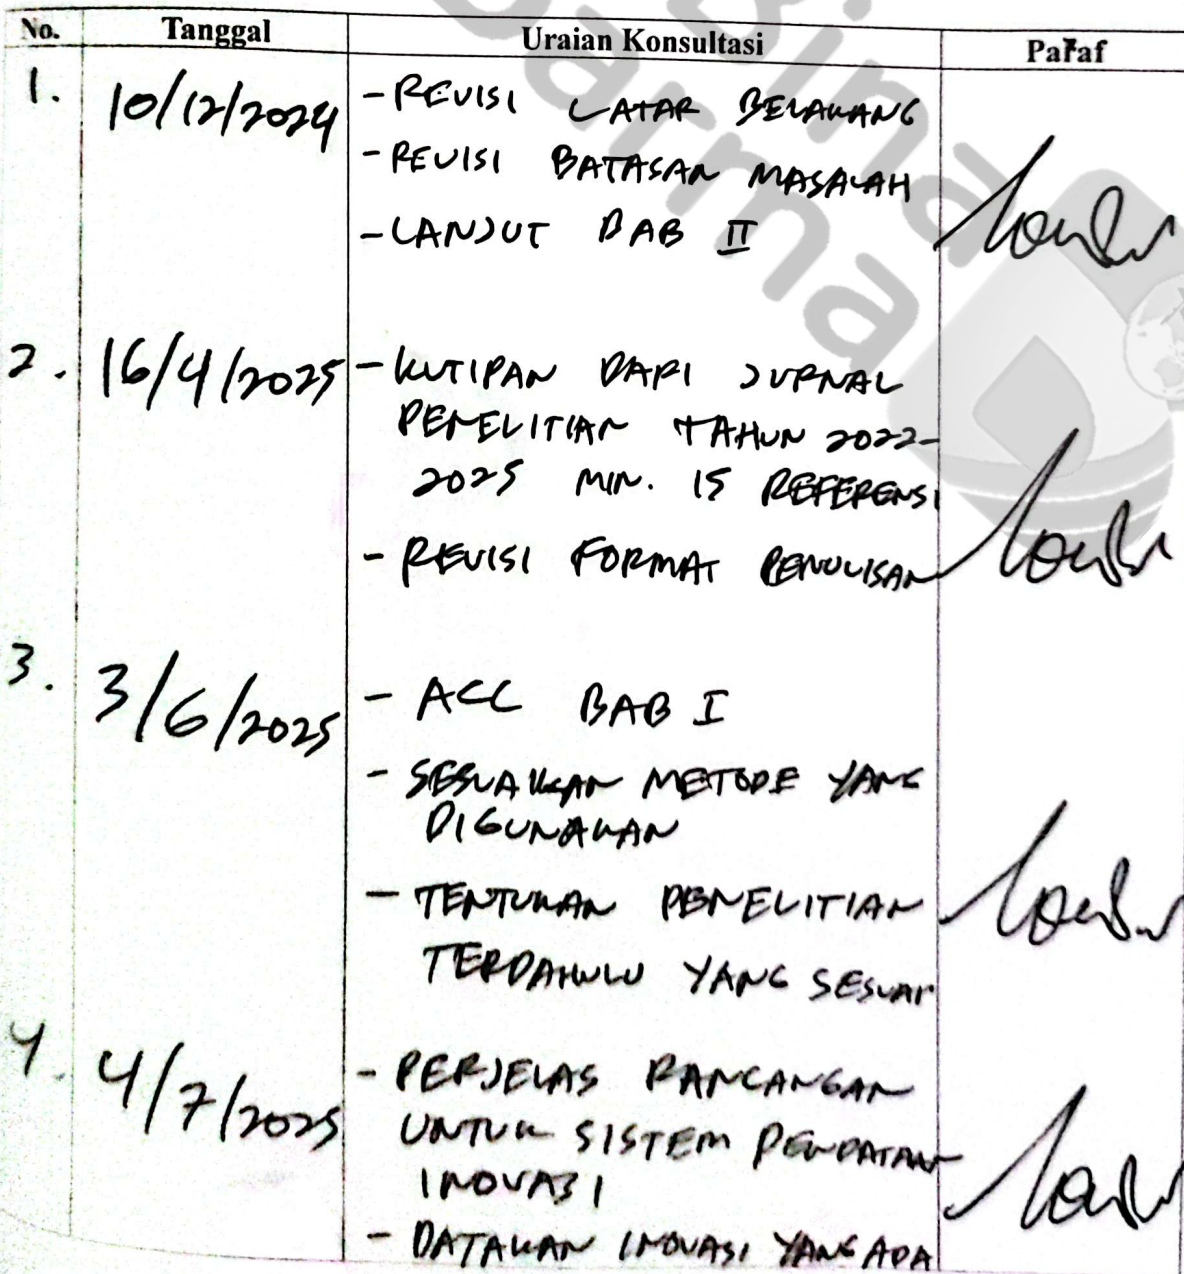 Bina
Darma
No. Tanggal Uraian Konsultasi Paraf
1. 10/12/2024 - REVISI LATAR BELAKANG
- REVISI BATASAN MASALAH
- LANJUT BAB II
2. 16/4/2025 - KUTIPAN DARI JURNAL
PENELITIAN TAHUN 2022-
2025 MIN. 15 REFERENSI
- REVISI FORMAT PENULISAN
3. 3/6/2025 - ACC BAB I
- SESUAIKAN METODE YANG
DIGUNAKAN
- TENTUKAN PENELITIAN
TERDAHULU YANG SESUAI
4. 4/7/2025 - PERJELAS RANCANGAN
UNTUK SISTEM PENDATAAN
INOVASI
- DATAKAN INOVASI YANG ADA